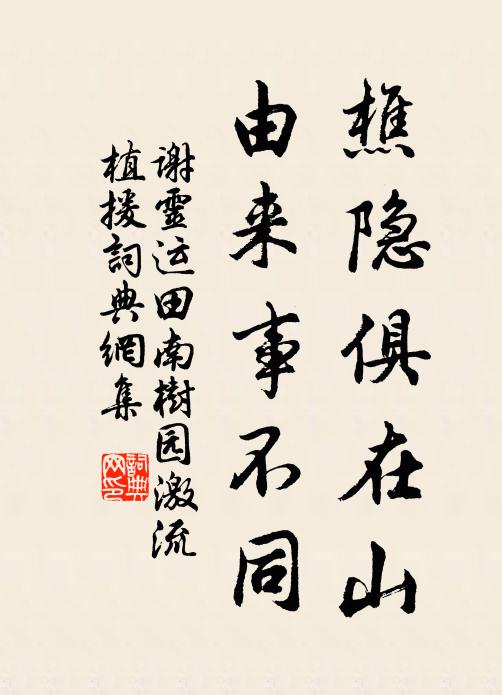 樵隐俱在山
由来事不同
谢霊运田南樹园激流
植援詞典網集
詞典网印